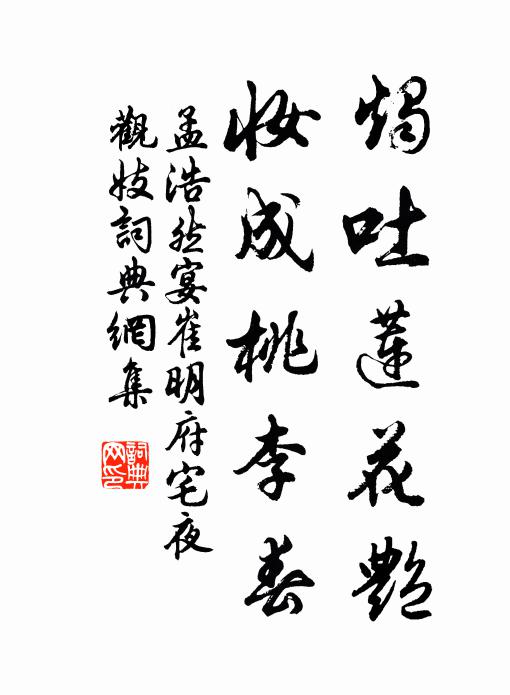 燭吐蓮花艷
妝成桃李春
孟浩然宴崔明府宅夜
觀妓詞典網集
詞典
网印